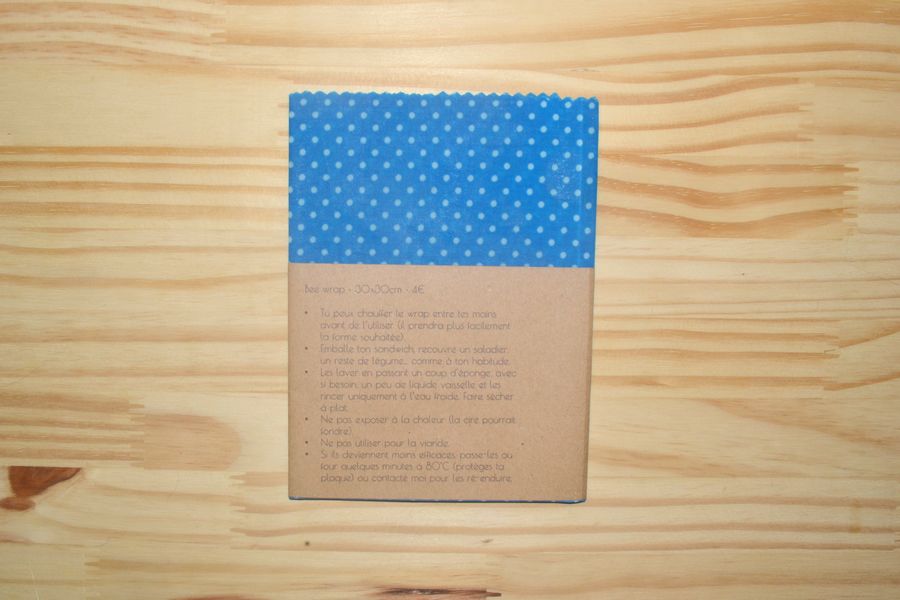 Bee wrap - 30x30cm - 4€
• Tu peux chauffer le wrap entre tes mains
avant de l'utiliser (il prendra plus facilement
la forme souhaitée).
• Emballe ton sandwich, recouvre un saladier,
un reste de légume... comme à ton habitude.
• Les laver en passant un coup d'éponge, avec
si besoin, un peu de liquide vaisselle et les
rincer uniquement à l'eau froide. Faire sécher
à plat.
• Ne pas exposer à la chaleur (la cire pourrait
fondre).
• Ne pas utiliser pour la viande.
• Si ils deviennent moins efficaces, passe-les au
four quelques minutes à 80°C (protèges ta
plaque) ou contacte moi pour les ré-enduire.